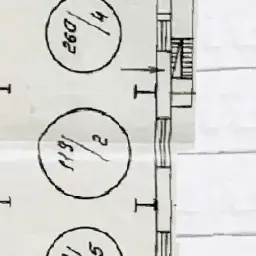 260/4
119/2
5